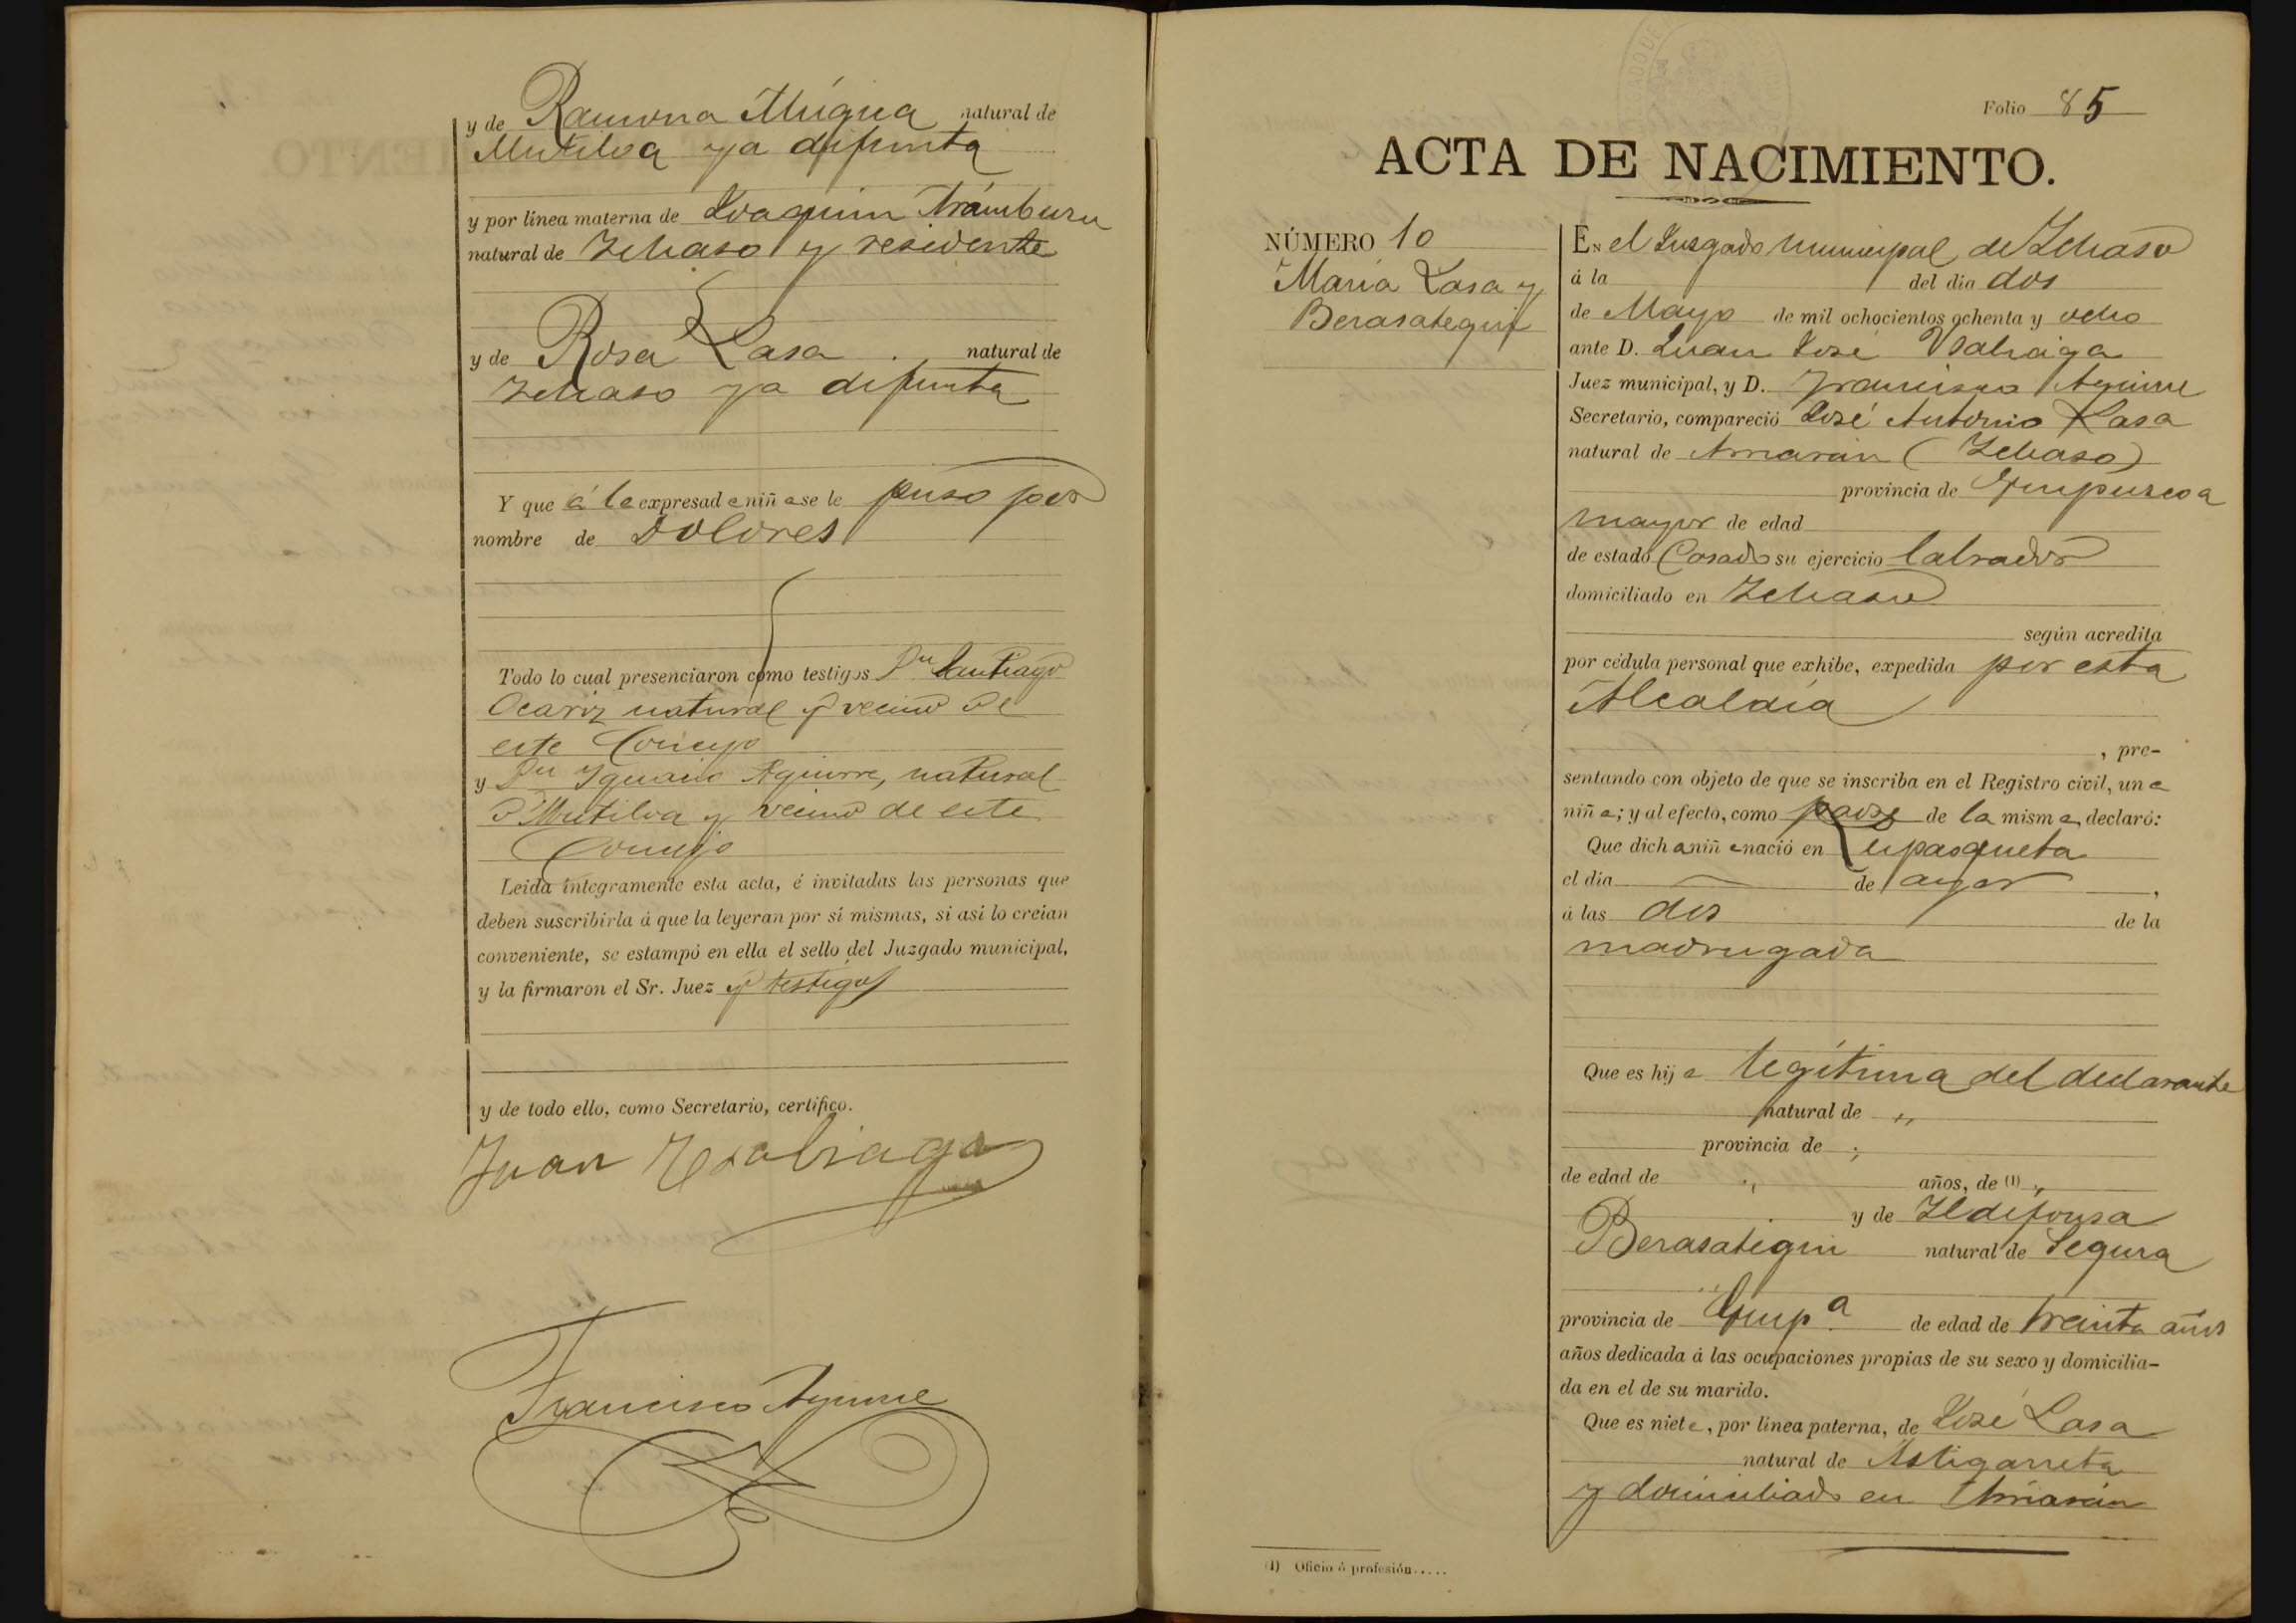 y de Ramona Múgica natural de
Mutiloa ya difunta
y por línea materna de Joaquin Aramburu
natural de Ichaso y residente
y de Rosa Lasa natural de
Ichaso ya difunta
Y que á la expresad a niñ a se le puso por
nombre de Dolores
Todo lo cual presenciaron como testigos Dn Santiago
Ocariz natural y vecino de
este Concejo
y Dn Ygnacio Aguirre, natural
d Mutiloa y vecino de este
Concejo
Leida íntegramente esta acta, é invitadas las personas que
deben suscribirla á que la leyeran por sí mismas, si así lo creían
conveniente, se estampó en ella el sello del Juzgado municipal,
y la firmaron el Sr. Juez y testigos
y de todo ello, como Secretario, certifico.
Juan Usabiaga
Francisco Aguirre
Folio 85
ACTA DE NACIMIENTO.
NÚMERO 10
María Lasa y
Berasategui
En el Juzgado municipal de Ichaso
á la del día dos
de Mayo de mil ochocientos ochenta y ocho
ante D. Juan José Usabiaga
Juez municipal, y D. Francisco Aguirre
Secretario, compareció José Antonio Lasa
natural de Arriarán (Ichaso)
provincia de Guipuzcoa
mayor de edad
de estado Casado su ejercicio labrador
domiciliado en Ichaso
según acredita
por cédula personal que exhibe, expedida por esta
Alcaldía
, pre-
sentando con objeto de que se inscriba en el Registro civil, un a
niñ a; y al efecto, como padre de la mism a, declaró:
Que dich a niñ a nació en
el día de ayer ,
á las dos de la
madrugada
Que es hij a legítima del declarante
natural de „
provincia de „
de edad de „ años, de (1) „
y de Ildefonsa
Berasategui natural de Segura
provincia de Guipª de edad de treinta años
años dedicada á las ocupaciones propias de su sexo y domicilia-
da en el de su marido.
Que es niet a, por línea paterna, de José Lasa
natural de Astigarreta
y domiciliado en Arriarán
(1) Oficio ó profesión.....